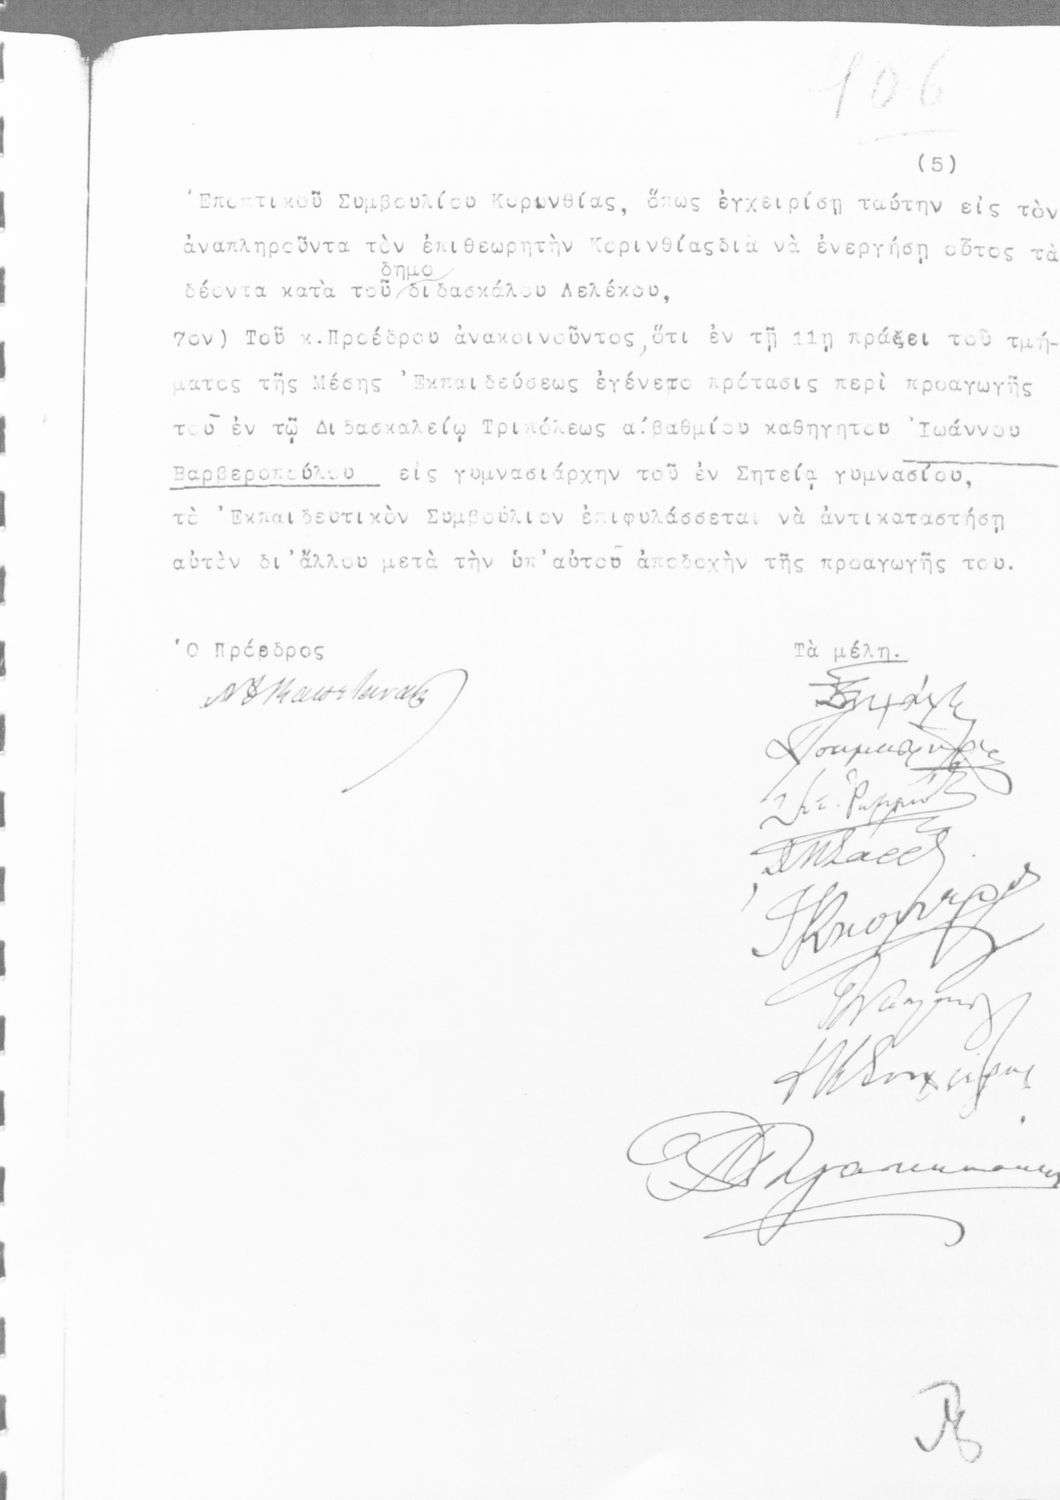 106
(5)
Ἐποπτικοῦ Συμβουλίου Κορινθίας, ὅπως ἐγχειρίσῃ ταύτην εἰς τὸν
ἀναπληροῦντα τὸν ἐπιθεωρητὴν Κορινθίαςδιὰ νὰ ἐνεργήσῃ οὗτος τὰ
δημο
δέοντα κατὰ τοῦ διδασκάλου Λελέκου,
7ον) Τοῦ κ.Προέδρου ἀνακοινοῦντος,ὅτι ἐν τῇ 11ῃ πράξει τοῦ τμή-
ματος τῆς Μέσης Ἐκπαιδεύσεως ἐγένετο πρότασις περὶ προαγωγῆς
τοῦ ἐν τῷ Διδασκαλείῳ Τριπόλεως α΄βαθμίου καθηγητοῦ Ἰωάννου
Βαρβεροπούλου εἰς γυμνασιάρχην τοῦ ἐν Σητείᾳ γυμνασίου,
τὸ Ἐκπαιδευτικὸν Συμβούλιον ἐπιφυλάσσεται νὰ ἀντικαταστήσῃ
αὐτὸν δι'ἄλλου μετὰ τὴν ὑπ'αὐτοῦ ἀποδοχὴν τῆς προαγωγῆς του.
Ὁ Πρόεδρος
Τὰ μέλη.